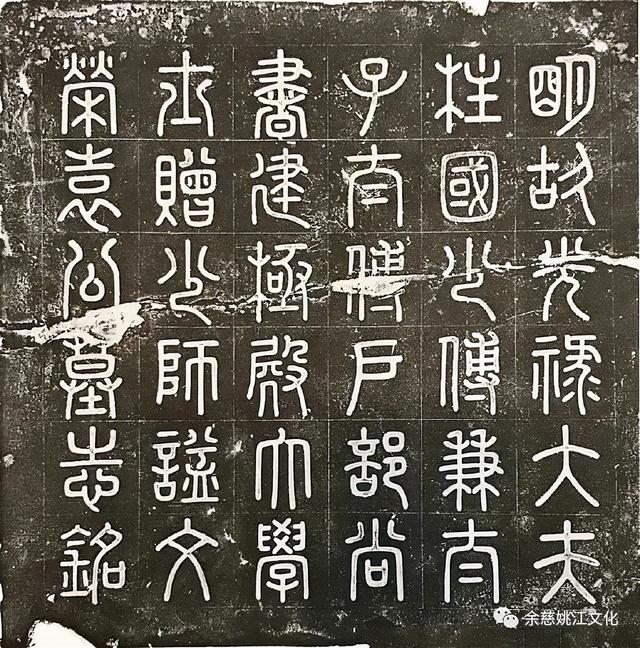 明故光祿大夫
柱國少傅兼太
子太傅戶部尚
書建極殿大學
士贈少師謚文
榮袁公墓志銘
余慈姚江文化